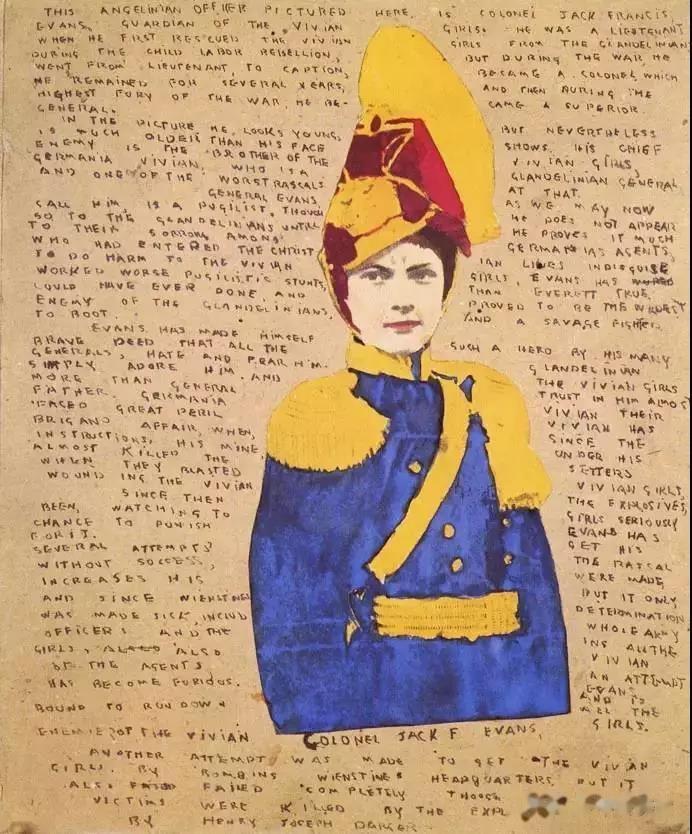 THIS ANGELINIAN OFFICER PICTURED HERE, IS COLONEL JACK FRANCIS,
EVANS, GUARDIAN OF THE VIVIAN GIRLS. HE WAS A LIEUTENANT
WHEN HE FIRST RESCUED THE VIVIAN GIRLS FROM THE GLANDELINIANS
DURING THE CHILD LABOR REBELLION, BUT DURING THE WAR HE
WENT FROM LIEUTENANT, TO CAPTION, BECAME A COLONEL, WHICH
HE REMAINED FOR SEVERAL YEARS, AND THEN DURING THE
HIGHEST FURY OF THE WAR, HE BE- CAME A SUPERIOR
GENERAL.
IN THE PICTURE HE LOOKS YOUNG, BUT NEVERTHELESS
IS MUCH OLDER THAN HIS FACE SHOWS. HIS CHIEF
ENEMY IS THE BROTHER OF THE VIVIAN GIRLS,
GERMANIA VIVIAN, WHO IS A GLANDELINIAN GENERAL
AND ONE OF THE WORST RASCALS AT THAT.
GENERAL EVANS, AS WE MAY NOW
CALL HIM, IS A PUGILIST, THOUGH HE DOES NOT APPEAR
SO TO THE GLANDELINIANS UNTIL HE PROVES IT MUCH
TO THEIR SORROW. AMONG GERMANIAS AGENTS,
WHO HAD ENTERED THE CHRIST IAN LINES IN DISGUISE
TO DO HARM TO THE VIVIAN GIRLS, EVANS HAS
WORKED WORSE PUGILISTIC STUNTS, THAN EVERETT TRUE,
COULD HAVE EVER DONE, AND PROVED TO BE THE WILDEST
ENEMY OF THE GLANDELINIANS, AND A SAVAGE FIGHTER
TO BOOT.
EVANS HAS MADE HIMSELF SUCH A HERO BY HIS MANY
BRAVE DEED THAT ALL THE GLANDELINIAN
GENERALS, HATE AND FEAR HIM. THE VIVIAN GIRLS
SIMPLY ADORE HIM AND TRUST IN HIM ALMOST
MORE THAN GENERAL VIVIAN THEIR
FATHER. GERMANIA VIVIAN HAS
FACED GREAT PERIL SINCE THE
BRIGAND AFFAIR, WHEN, UNDER HIS
INSTRUCTIONS, HIS MINE SETTERS
ALMOST KILLED THE VIVIAN GIRLS,
WHEN THEY BLASTED THE EXPLOSIVES,
WOUNDING THE VIVIAN GIRLS SERIOUSLY
SINCE THEN EVANS HAS
BEEN, WATCHING TO GET HIS
CHANCE TO PUNISH THE RASCAL
FOR IT.
SEVERAL ATTEMPTS WERE MADE
WITHOUT SUCCESS, BUT IT ONLY
INCREASES HIS DETERMINATION
AND SINCE WIENSTINES WHOLE ARMY
WAS MADE SICK, INCLUD ING ALL THE
OFFICERS AND THE VIVIAN
GIRLS, ALSO AN ATTEMPT
OF THE AGENTS EVANS
HAS BECOME FURIOUS. AND IS
BOUND TO RUN DOWN ALL THE
ENEMIES OF THE VIVIAN GIRLS.
COLONEL JACK F EVANS,
ANOTHER ATTEMPT WAS MADE TO GET THE VIVIAN
GIRLS BY BOMBING WIENSTINES HEADQUARTERS, BUT IT
ALSO FAILED COMPLETELY THOUGH
VICTIMS WERE KILLED BY THE EXPL
BY HENRY JOSEPH DARGER